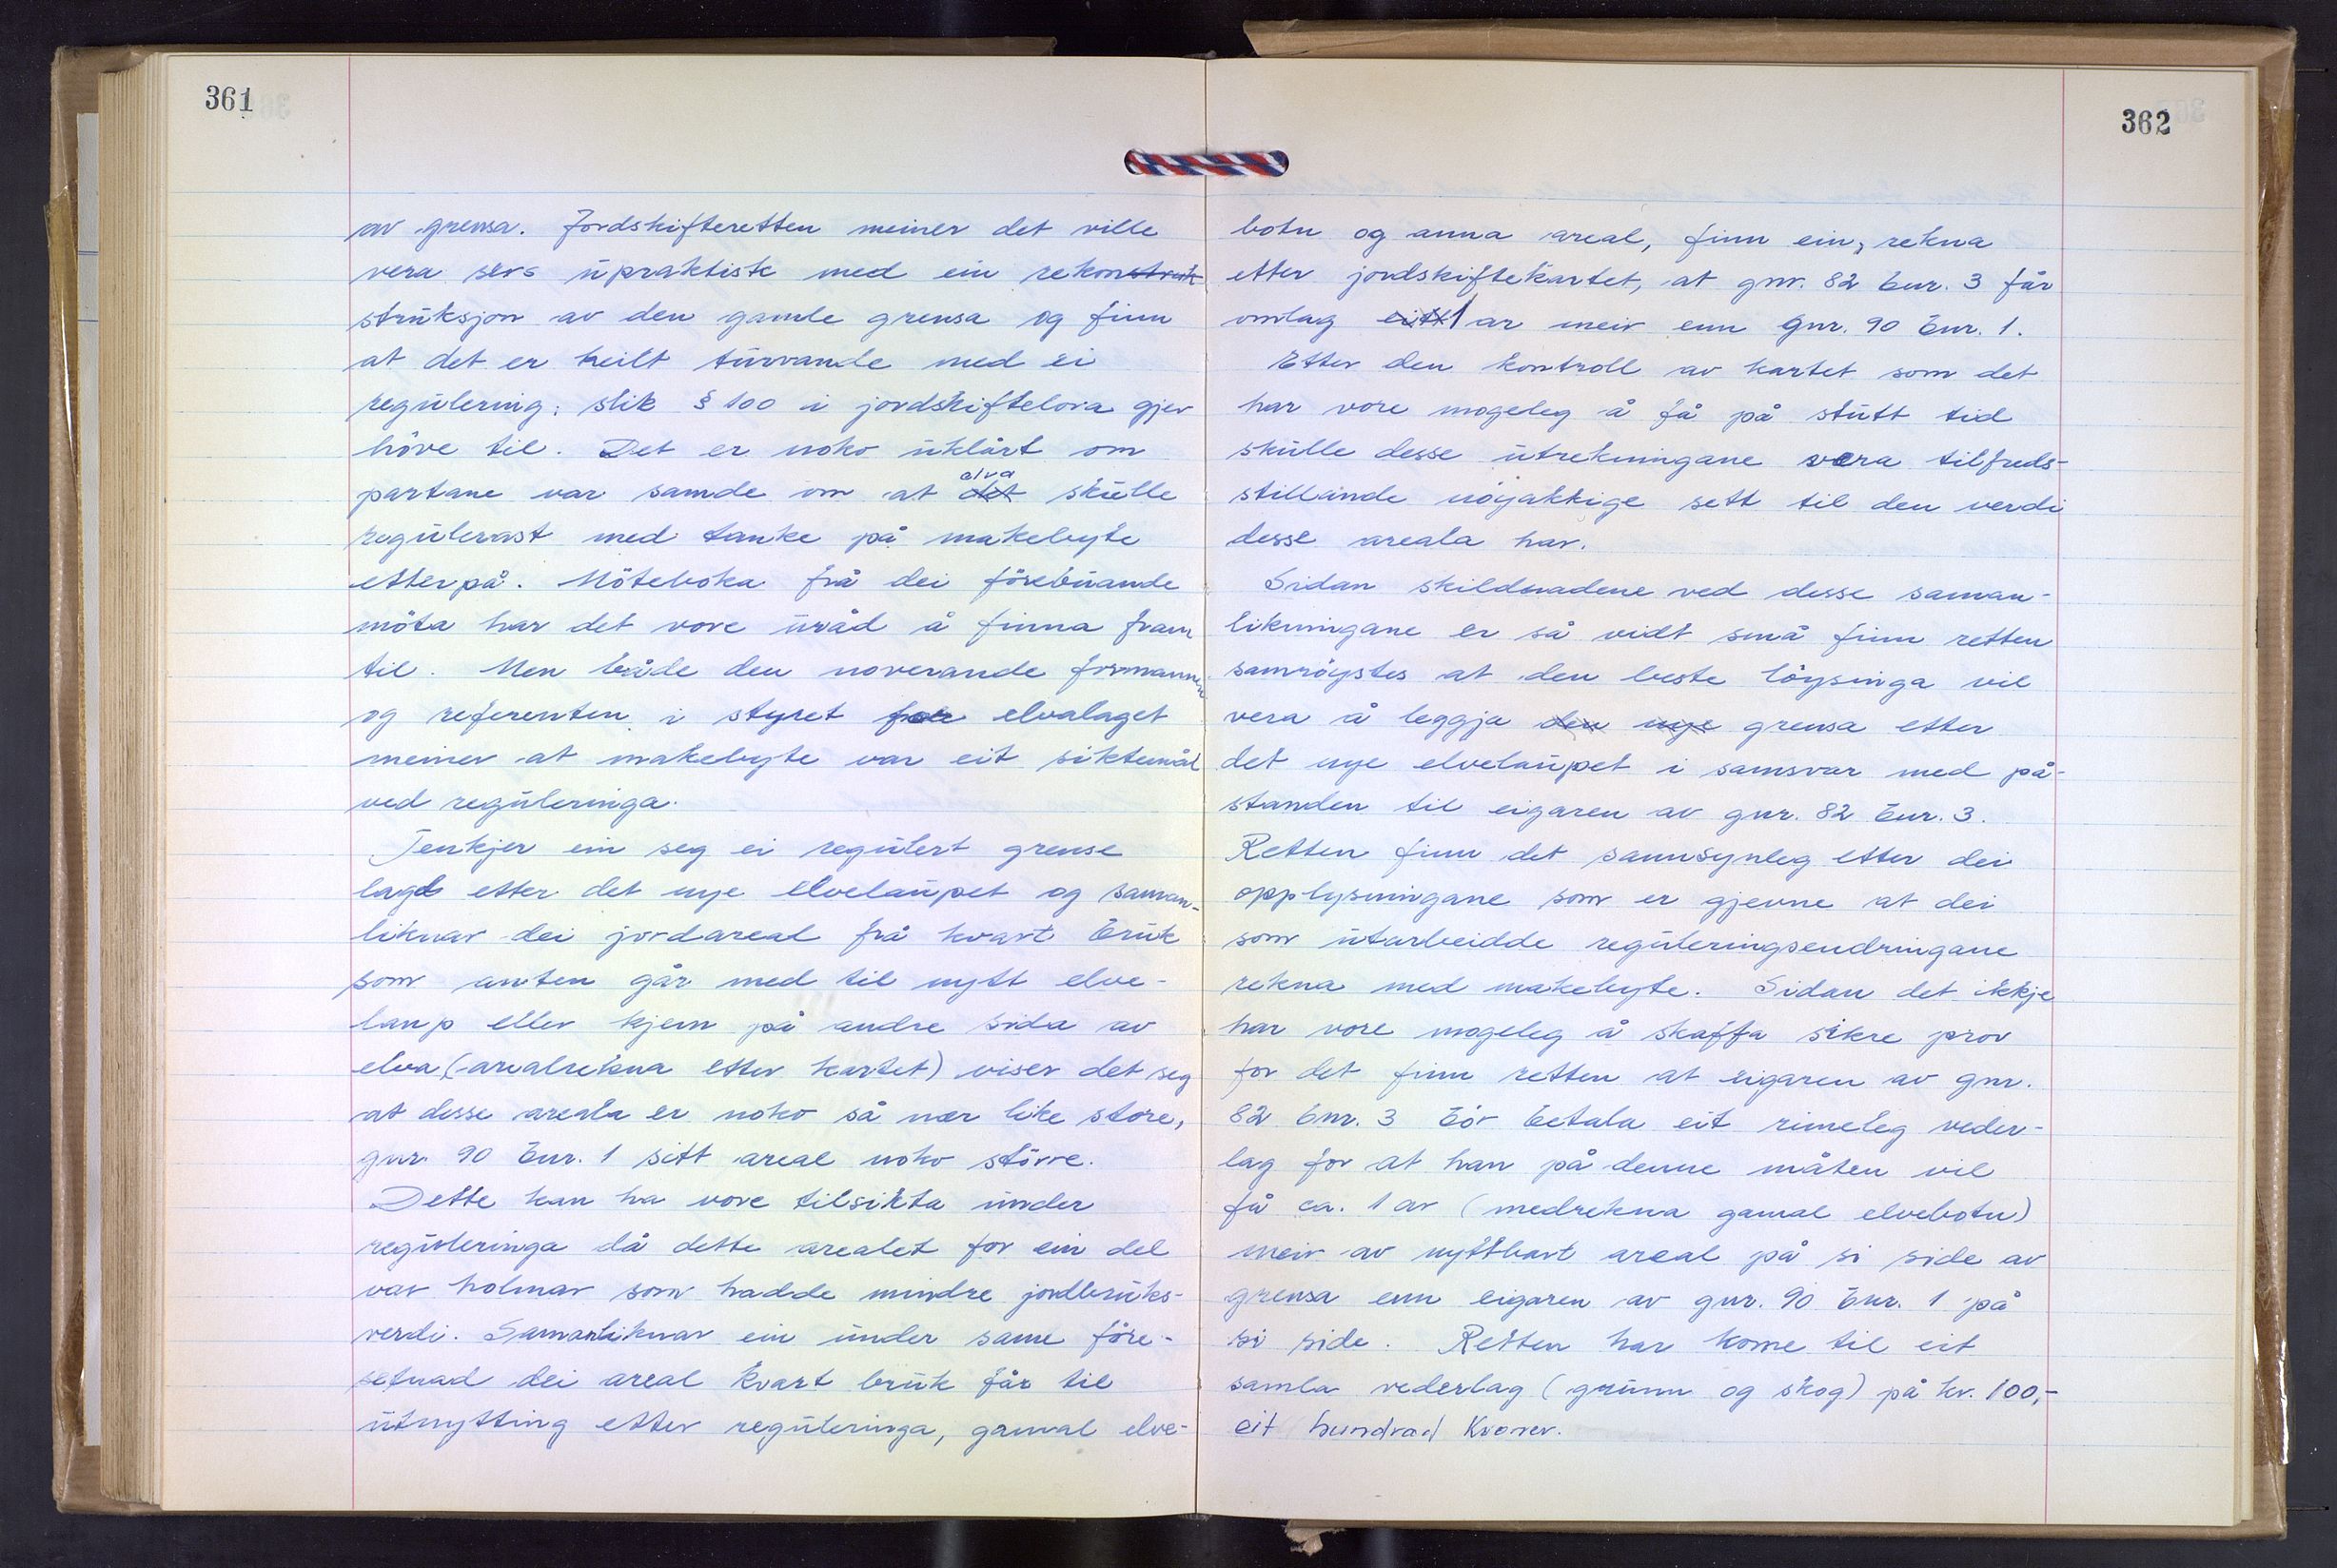 361
av grensa. Jordskifteretten meiner det ville
vera sers upraktisk med ein rekonstruk
struksjon av den gamle grensa og finn
at det er heilt turvande med ei
regulering, slik § 100 i jordskiftelova gjev
höve til. Det er noko uklårt om
partane var samde om at det elva skulle
regulerast med tanke på makebyte
etterpå. Möteboka frå dei förebuande
möta har det vore uråd å finna fram
til. Men både den noverande formannen
og referenten i styret for elvalaget
meiner at makebyte var eit siktemål
ved reguleringa.
Tenkjer ein seg ei regulert grense
lagd etter det nye elvelaupet og saman-
liknar dei jordareal frå kvart bruk
som anten går med til nytt elve-
laup eller kjem på andre sida av
elva (arealrekna etter kartet) viser det seg
at desse areala er noko så nær like store,
gnr. 90 bnr. 1 sitt areal noko större.
Dette kan ha vore tilsikta under
reguleringa då dette arealet for ein del
var holmar som hadde mindre jordbruks-
verdi. Samanliknar ein under same före-
setnad dei areal kvart bruk får til
utnytting etter reguleringa, gamal elve-
362
botn og anna areal, finn ein, rekna
etter jordskiftekartet, at gnr. 82 bnr. 3 får
omlag eitt 1 ar meir enn gnr. 90 bnr. 1.
Etter den kontroll av kartet som det
har vore mogeleg å få på stutt tid
skulle desse utrekningane vera tilfreds-
stillande nöyaktige sett til den verdi
desse areala har.
Sidan skildnadene ved desse saman-
likningane er så vidt små finn retten
samröystes at den beste löysinga vil
vera å leggja den nye grensa etter
det nye elvelaupet i samsvar med på-
standen til eigaren av gnr. 82 bnr. 3.
Retten finn det sannsynleg etter dei
opplysningane som er gjevne at dei
som utarbeidde reguleringsendringane
rekna med makebyte. Sidan det ikkje
har vore mogeleg å skaffa sikre prov
for det finn retten at eigaren av gnr.
82 bnr. 3 bör betala eit rimeleg veder-
lag for at han på denne måten vil
få ca. 1 ar (medrekna gamal elvebotn)
meir av nyttbart areal på si side av
grensa enn eigaren av gnr. 90 bnr. 1 på
si side. Retten har kome til eit
samla vederlag (grunn og skog) på kr. 100,-
eit hundrad kroner.